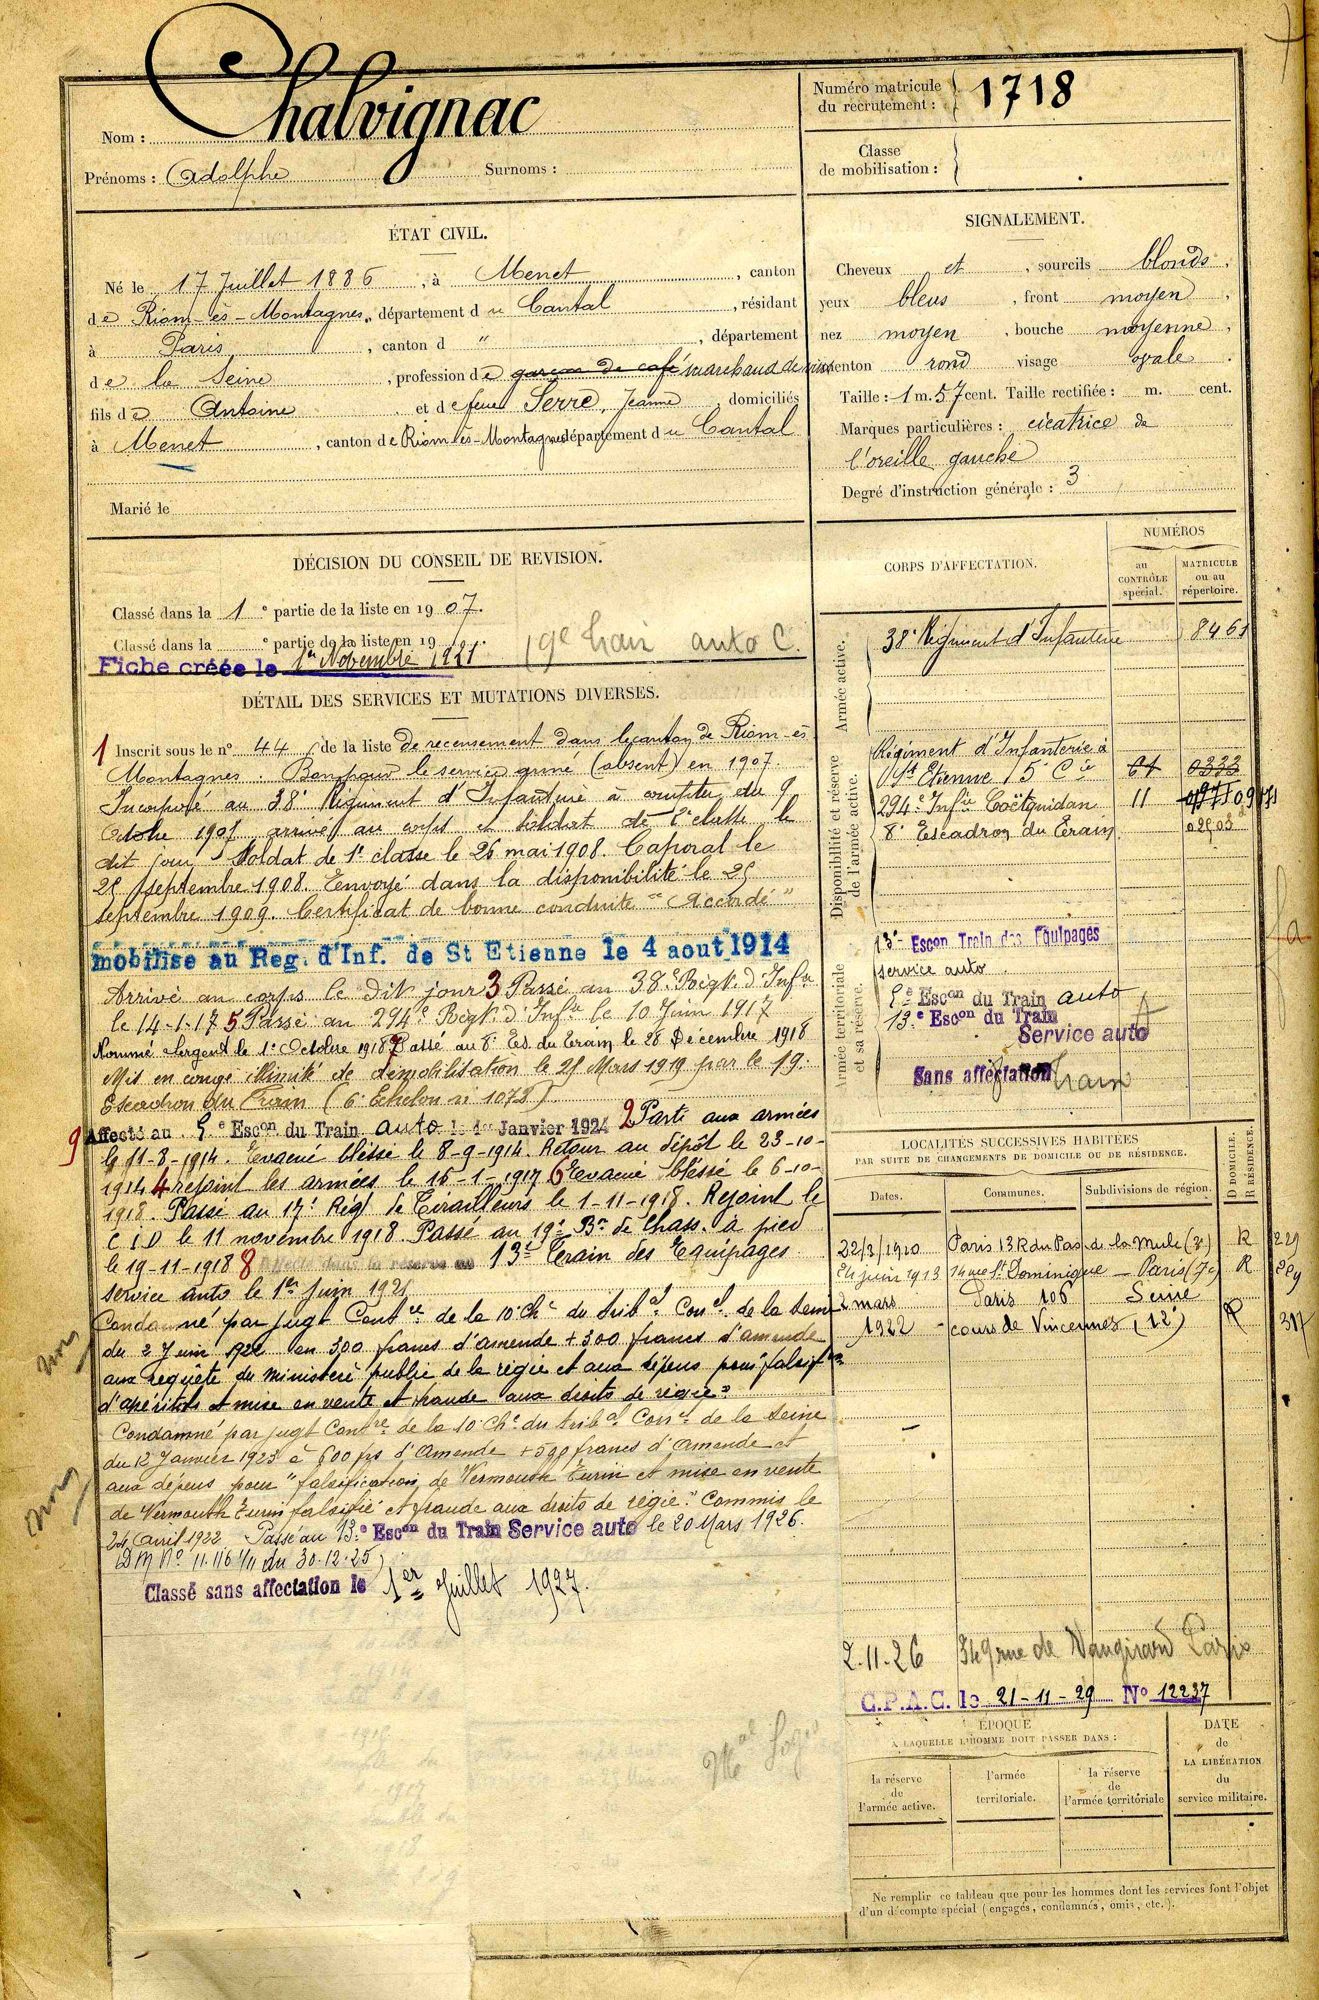 Nom : Chalvignac
Prénoms : Adolphe Surnoms :
Numéro matricule du recrutement : 1718
Classe de mobilisation :
ÉTAT CIVIL.
Né le 17 Juillet 1886, à Menet, canton
de Riom-ès-Montagnes, département du Cantal, résidant
à Paris, canton d ", département
de la Seine, profession de garçon de café marchand de vins
fils de Antoine et de feue Serre, Jeanne, domiciliés
à Menet, canton de Riom-ès-Montagnes département du Cantal
Marié le
SIGNALEMENT.
Cheveux et, sourcils blonds,
yeux bleus, front moyen,
nez moyen, bouche moyenne,
menton rond visage ovale.
Taille : 1 m. 57 cent. Taille rectifiée : m. cent.
Marques particulières : cicatrice de
l'oreille gauche
Degré d'instruction générale : 3
DÉCISION DU CONSEIL DE REVISION.
Classé dans la 1e partie de la liste en 1907.
Classé dans la e partie de la liste en 19
Fiche créée le 1er Novembre 1921
19e train auto C.
DÉTAIL DES SERVICES ET MUTATIONS DIVERSES.
1 Inscrit sous le n° 44 de la liste de recensement dans le canton de Riom-ès-
Montagnes. Bon pour le service armé (absent) en 1907.
Incorporé au 38e Régiment d'Infanterie à compter du 9
Octobre 1907, arrivé au corps et soldat de 2e classe le
dit jour. Soldat de 1e classe le 26 mai 1908. Caporal le
25 septembre 1908. Envoyé dans la disponibilité le 25
septembre 1909. Certificat de bonne conduite "Accordé"
mobilisé au Reg. d'Inf. de St Etienne le 4 aout 1914
Arrivé au corps le dit jour 3 Passé au 38e Régt. d'Infie
le 14-1-17 5 Passé au 294e Régt. d'Infie le 10 Juin 1917
Nommé Sergent le 1er Octobre 1918 7 Passé au 8e Es. du Train le 28 Décembre 1918
Mis en congé illimité de démobilisation le 25 Mars 1919 par le 19e
Escadron du Train (6e Echelon n° 1072)
9 Affecté au 5e Escon du Train auto le 1er Janvier 1924 2 Parti aux armées
le 11-8-1914. Evacué blessé le 8-9-1914. Retour au dépôt le 23-10-
1914 4 rejoint les armées le 15-1-1917 6 Evacué blessé le 6-10-
1918. Passé au 17e Régt de Tirailleurs le 1-11-1918. Rejoint le
C I D le 11 novembre 1918. Passé au 19e Bon de Chass. à pied
le 19-11-1918 8 Affecté dans la réserve au 13e Train des Equipages
service auto le 1er Juin 1921
Condamné par jugt Contre de la 10e Che du tribal Corel de la Seine
du 2 Juin 1922 en 300 francs d'amende + 300 francs d'amende
aux requête du ministère public de la régie et aux dépens pour "falsifion
d'apéritifs et mise en vente et fraude aux droits de régie"
Condamné par jugt Contre de la 10e Che du tribal Corel de la Seine
du 12 Janvier 1923 à 600 frs d'Amende + 500 francs d'Amende et
aux dépens pour "falsification de Vermouth Turin et mise en vente
de Vermouth Turin falsifié et fraude aux droits de régie." Commis le
24 Avril 1922 Passé au 13e Escon du Train Service auto le 20 Mars 1926.
(DM N° 11.116 1/11 du 30-12-25)
Classé sans affectation le 1er Juillet 1927.
CORPS D'AFFECTATION.
NUMÉROS
au CONTRÔLE spécial.
MATRICULE ou au répertoire.
Armée active.
38e Régiment d'Infanterie 8461
Disponibilité et réserve de l'armée active.
Régiment d'Infanterie à
St Etienne 15e Cie 64 0333
294e Infie Coëtquidan 11 0971
8e Escadron du Train 02503
Armée territoriale et sa réserve.
13e Escon Train des Equipages
service auto
5e Escon du Train auto
13e Escon du Train
Service auto A
Sans affectation Train
LOCALITÉS SUCCESSIVES HABITÉES
PAR SUITE DE CHANGEMENTS DE DOMICILE OU DE RÉSIDENCE.
Dates. Communes. Subdivisions de région. D DOMICILE. R RÉSIDENCE.
22/3/1910 Paris 13 R du Pas de la Mule (3e) R 229
24 juin 1913 14 rue St Dominique — Paris (7e) R 229
2 mars Paris 106 Seine
1922 - cours de Vincennes (12e) R 317
2.11.26 349 rue de Vaugirard Paris
C.P.A.C. le 21-11-29 N° 12237
ÉPOQUE
A LAQUELLE L'HOMME DOIT PASSER DANS :
la réserve de l'armée active.
l'armée territoriale.
la réserve de l'armée territoriale
DATE de LA LIBÉRATION du service militaire.
Mal Logis
Ne remplir ce tableau que pour les hommes dont les services font l'objet
d'un décompte spécial (engagés, condamnés, omis, etc.).